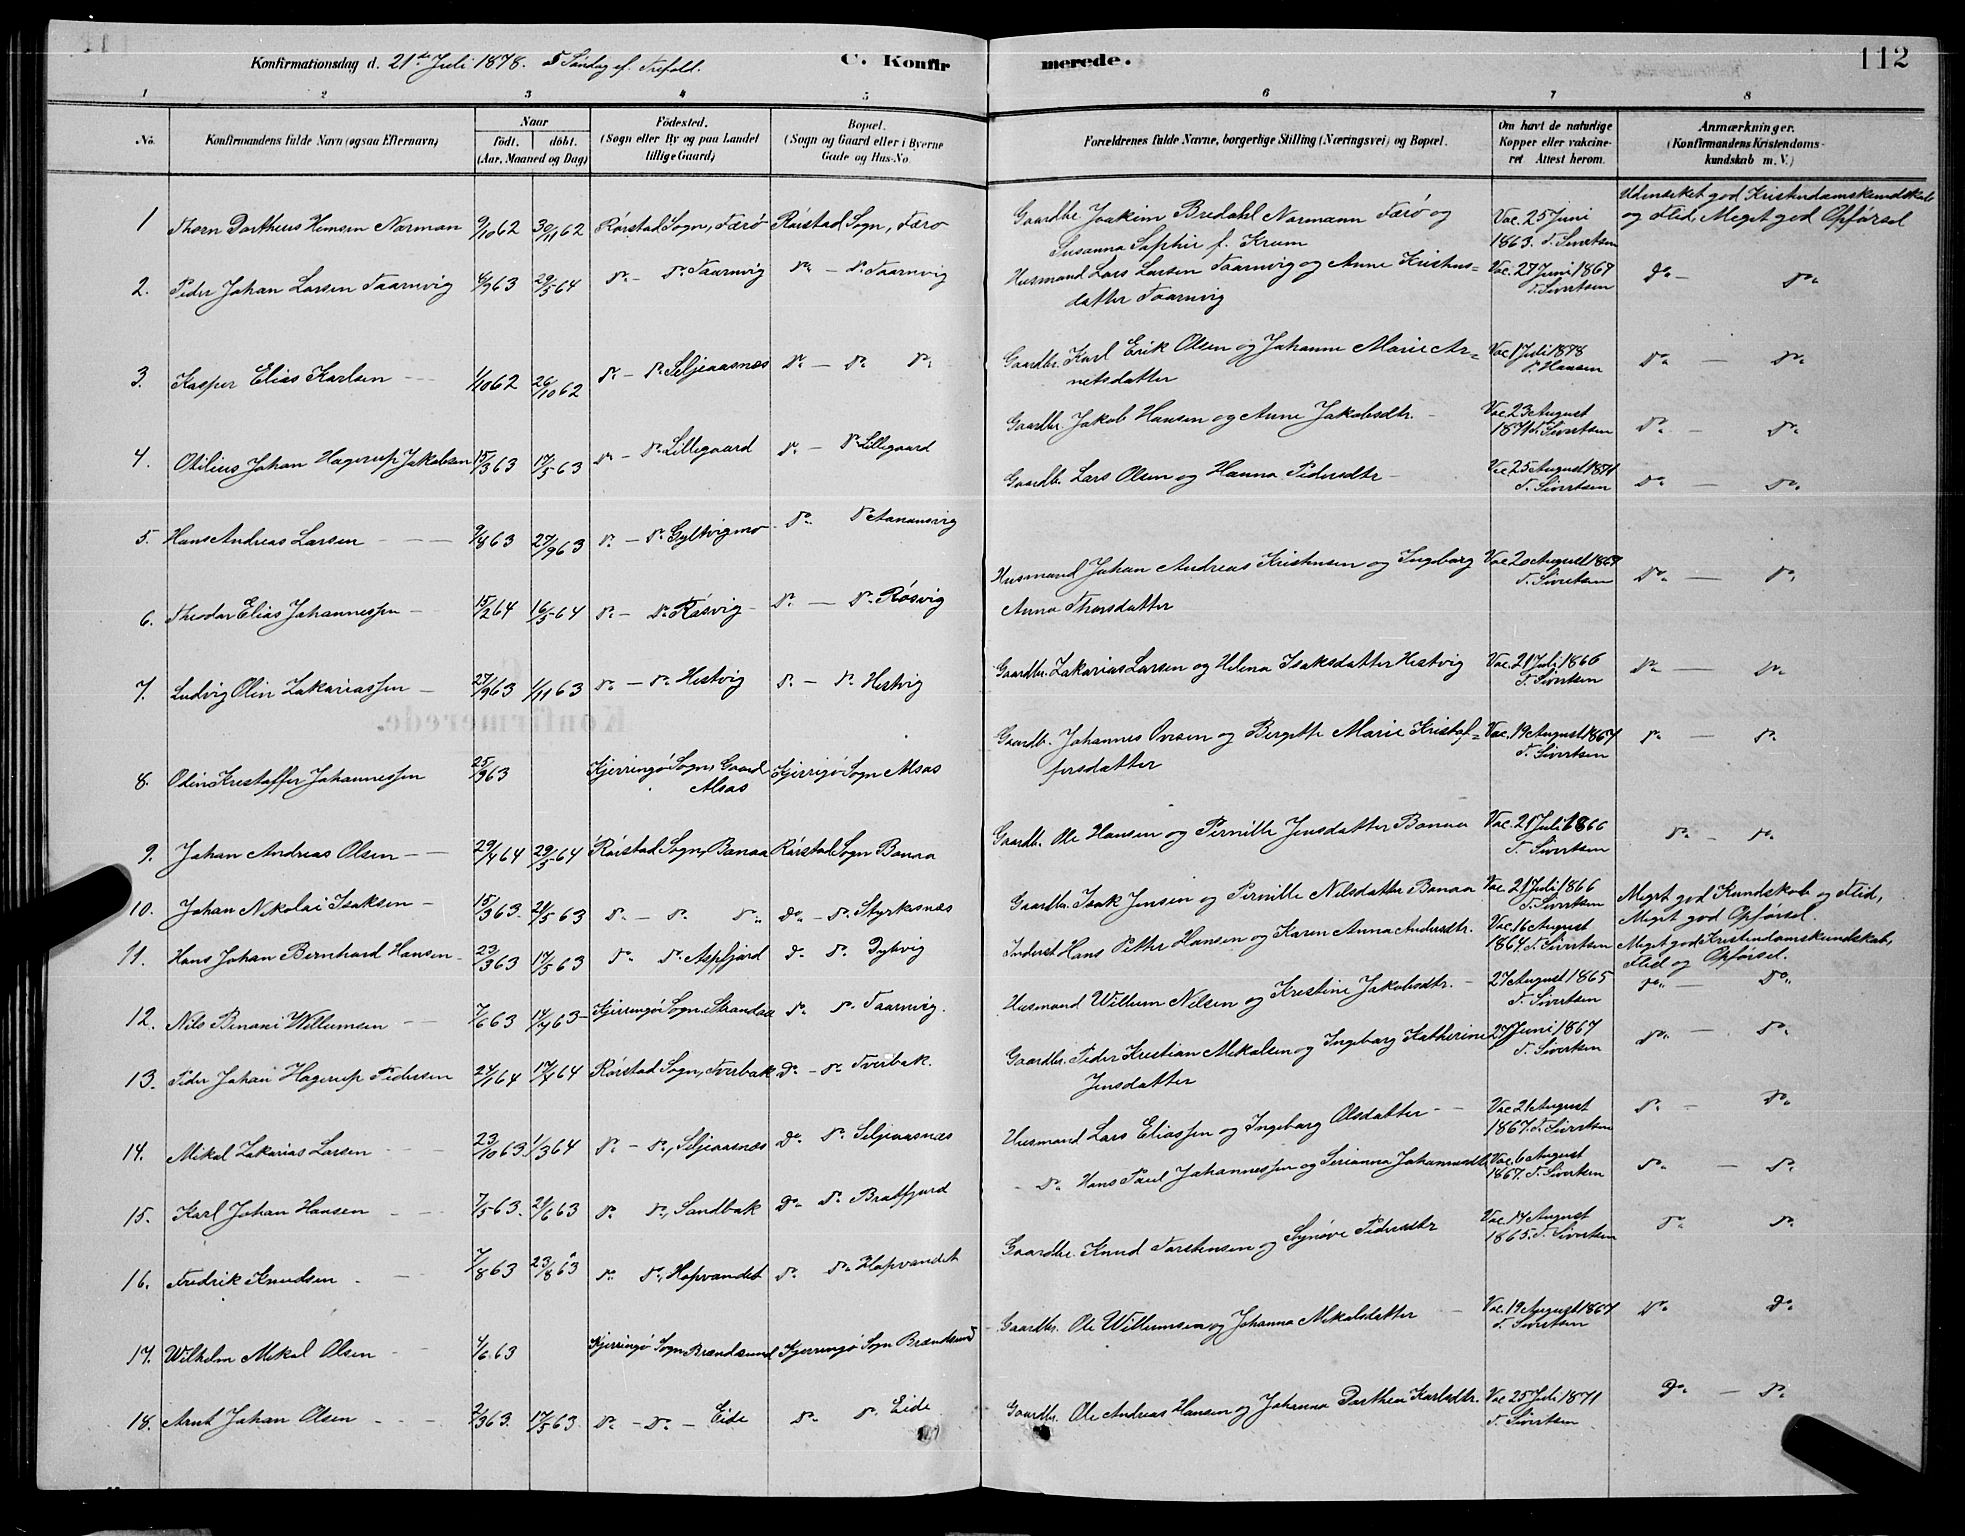 Konfirmationsdag d. 21de Juli 1878. 5 Søndag ef. Trefold.
C. Konfirmerede.
112
1 2 3 4 5 6 7 8
No.
Konfirmandens fulde Navn (ogsaa Efternavn)
Naar
født. døbt.
(Aar, Maaned og Dag)
Födested.
(Sogn eller By og paa Landet
tillige Gaard)
Bopæl.
(Sogn og Gaard eller i Byerne
Gade og Hus-No.
Forældrenes fulde Navne, borgerlige Stilling (Næringsvei) og Bopæl.
Om havt de naturlige
Kopper eller vakcine-
ret Attest herom.
Anmærkninger.
(Konfirmandens Kristendoms-
kundskab m. V.)
1 Dortheus Hemsen Norman 9/10 62 30/11 62 Rørstad Sogn, Færø Rørstad Sogn, Færø Gaardbr. Joakim Bredahl Normann Færø og Vac. 25 Juni Udmærket god Kristendomskundskab
Susanna Saphir f. Krum 1863. T. Sivertsen og Flid, Meget god Opførsel
2. Peder Johan Larsen Taarnvig 6/9 63 29/5 64 Do - Do Taarnvig Do - Do Taarnvig Husmand Lars Larsen Taarnvig og Anne Kristens= Vac. 27 Juni 1867 Do - Do
datter Taarnvig T. Sivertsen
3. Kasper Elias Karlsen 1/10 62 26/10 62 Do - Do Seljeaasnæs Do - Do Do Gaardbr. Karl Erik Olsen og Johanna Marie Ar= Vac 1 Juli 1878 Do - Do
netsdatter P. Hansen
4. Otilius Johan Hagerup Jakobsen 15/3 63 17/5 63 Do - Do Lillegaard Do - Do Lillegaard Gaardbr. Jakob Hansen og Anne Jakobsdtr. Vac. 23 August Do - Do
1871 T. Sivertsen
5. Hans Andreas Larsen 9/8 63 27/9 63 Do - Do Gyltvigmo Do Do Aanansvig Gaardbr. Lars Olsen og Hanna Pedersdtr Vac. 25 August 1871 Do - Do
T. Sivertsen
6. Theodor Elias Johannessen 15/2 64 16/5 64 Do - Do Røsvig Do - Do Røsvig Husmand Johan Andreas Kristensen og Ingeborg Vac. 20 August 1867 Do - Do
Anna Thorsdatter T. Sivertsen
7. Ludvig Olin Zakariassen 27/9 63 1/11 63 Do - Do Hestvig Do - Do Hestvig Gaardbr. Zakarias Larsen og Helena Isaksdatter Hestvig Vac. 21 Juli 1866 Do - Do
T. Sivertsen
8. Olin Kristoffer Johannessen 25/9 63 Kjerringø Sogn, Gaard Kjerringø Sogn Alsos Gaardb. Johannes Ovesen og Birgitte Marie Kristof= Vac. 19 August 1867 Do - Do
Alsos fersdatter T. Sivertsen
9. Johan Andreas Olsen 29/4 64 29/5 64 Rørstad Sogn, Bonaa Rørstad Sogn Bonaa Gaardb. Ole Hansen og Pernille Jensdatter Bonaa Vac. 21 Juli 1866 Do - Do
T. Sivertsen
10. Johan Nikolai Isaksen 15/3 63. 21/5 63 Do - Do Do Do - Do Styrkesnæs Gaardbr. Isak Jensen og Pernille Nilsdatter Bonaa Vac. 21 Juli 1866 Meget god Kundskab og Flid,
T. Sivertsen Meget god Opførsel.
11. Hans Johan Bernhard Hansen 23/3 63 17/5 63 Do Do Aspfjord Do Do Dybvig Inderst Hans Petter Hansen og Karen Anna Andersdtr. Vac. 16 August Meget god Kristendomskundskab,
1864. T. Sivertsen Flid og Opførsel.
12. Nils Benoni Willumsen 7/6 63 14/7 63 Kjerringø Sogn Strandaa Do Do Taarnvig. Husmand Willum Nilsen og Kristine Jakobsdtr. 27 August 1865 Do - Do
T. Sivertsen
13. Peder Johan Hagerup Pedersen 24/1 64 17/4 64 Rørstad Sogn, Tverbak Do - Do Tverbak. Gaardbr. Peder Kristian Mikalsen og Ingeborg Katherine 27 Juni 1867 Do - Do
Jensdatter T. Sivertsen
14. Mikal Zakarias Larsen 23/10 63 1/3 64 Do - Do, Seljeaasnæs Do Do Seljeaasnæs Husmand Lars Eliassen og Ingeborg Olsdatter Vac 21 August Do - Do
1867. T. Sivertsen
15. Karl Johan Hansen 7/5 63. 21/6 63 Do Do, Sandbak Do Do Bratfjord Do Hans Paul Johannessen og Serianna Johannesdtr Vac. 6 August Do - Do
1867. T. Sivertsen
16. Fredrik Knudsen 7/8 63 23/8 63 Do Do, Hopvandet Do Do Hopvandet Gaardbr. Knud Torstensen og Synøve Pedersdtr Vac. 14 August Do Do
1865. T. Sivertsen
17. Wilhelm Mikal Olsen 4/6 63 Kjerringø Sogn Brændsund Kjerringø Sogn Brændsund Gaardbr. Ole Willumsen og Johanna Mikalsdatter Vac. 19 August 1867 Do Do
T. Sivertsen
18. Arnt Johan Olsen 2/3 63. 17/5 63. Do - Do - Eide Do Do Eide Gaardbr. Ole Andreas Hansen og Johanna Dorthea Karlsdtr. Vac 25 Juli 1871 Do - Do
T. Sivertsen